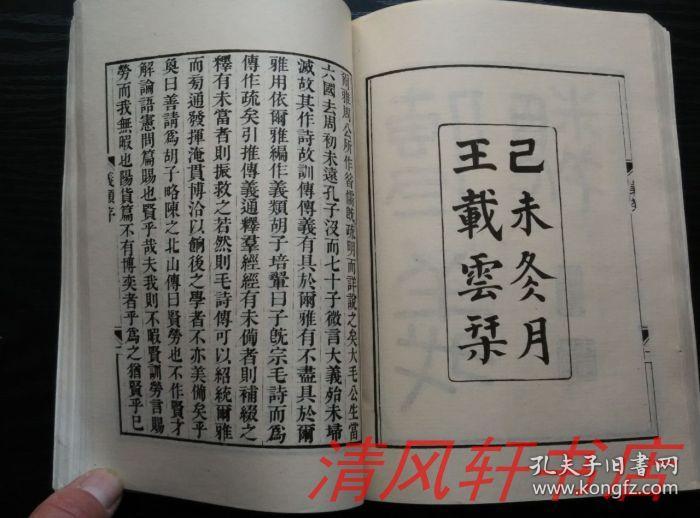 己未冬月
王載雲栞
爾雅周公所作儒旣疏明而詳說之矣大毛公生當
六國去周初未遠孔子沒而七十子微言大義殆未埽
滅故其作詩故訓傳傳義有具於爾雅有不盡具於爾
雅用依爾雅編作義類胡子培翬曰子旣宗毛詩而爲
傳作疏矣引推傳義通釋羣經經有未備者則補綴之
釋有未當者則振救之若然則毛詩傳可以紹統爾雅
而旁通發揮淹貫博洽以餉後之學者不亦美備矣乎
奐曰善請爲胡子略陳之北山傳曰賢勞也不作賢才
解論語憲問篇賜也賢乎哉夫我則不暇賢訓勞言賜
勞而我無暇也陽貨篇不有博奕者乎爲之猶賢乎已
義類序
清风轩书店
孔夫子旧书网
www.kongfz.com